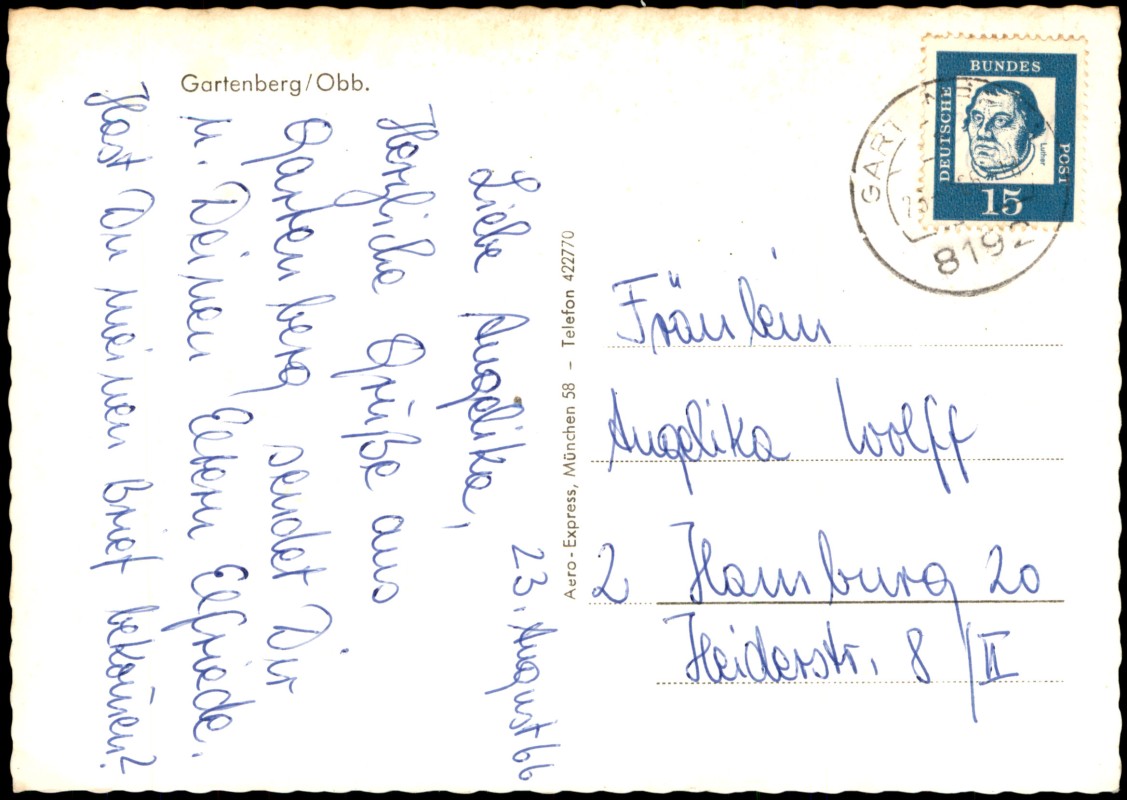 Gartenberg/Obb.
23. August 66
Liebe Angelika,
Herzliche Grüße aus
Gartenberg sendet Dir
u. Deinen Eltern Elfriede.
Hast Du meinen Brief bekom̄en?
Aero-Express, München 58 – Telefon 422770
DEUTSCHE
BUNDES
POST
Luther
15
8192
Fräulein
Angelika Wolff
2 Hamburg 20
Heiderstr. 8/II